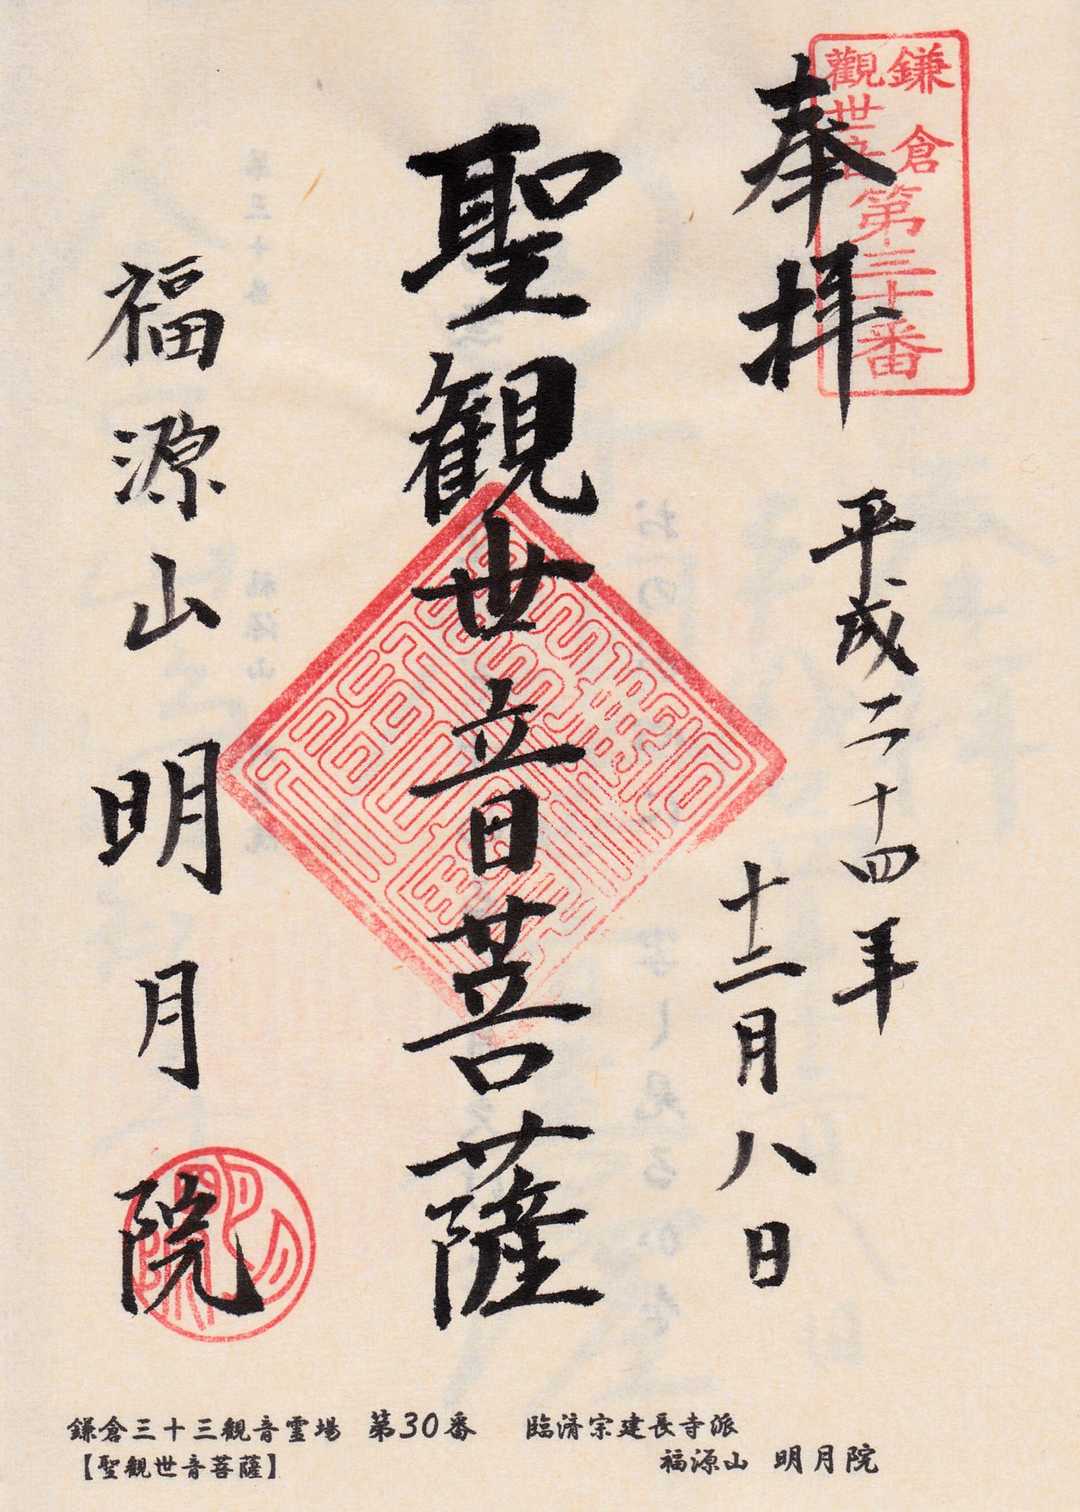 奉拝
鎌倉
觀世音
第三十番
平成二十四年
十二月八日
聖観世音菩薩
福源山明月院
鎌倉三十三観音霊場 第30番 臨済宗建長寺派
【聖観世音菩薩】 福源山 明月院